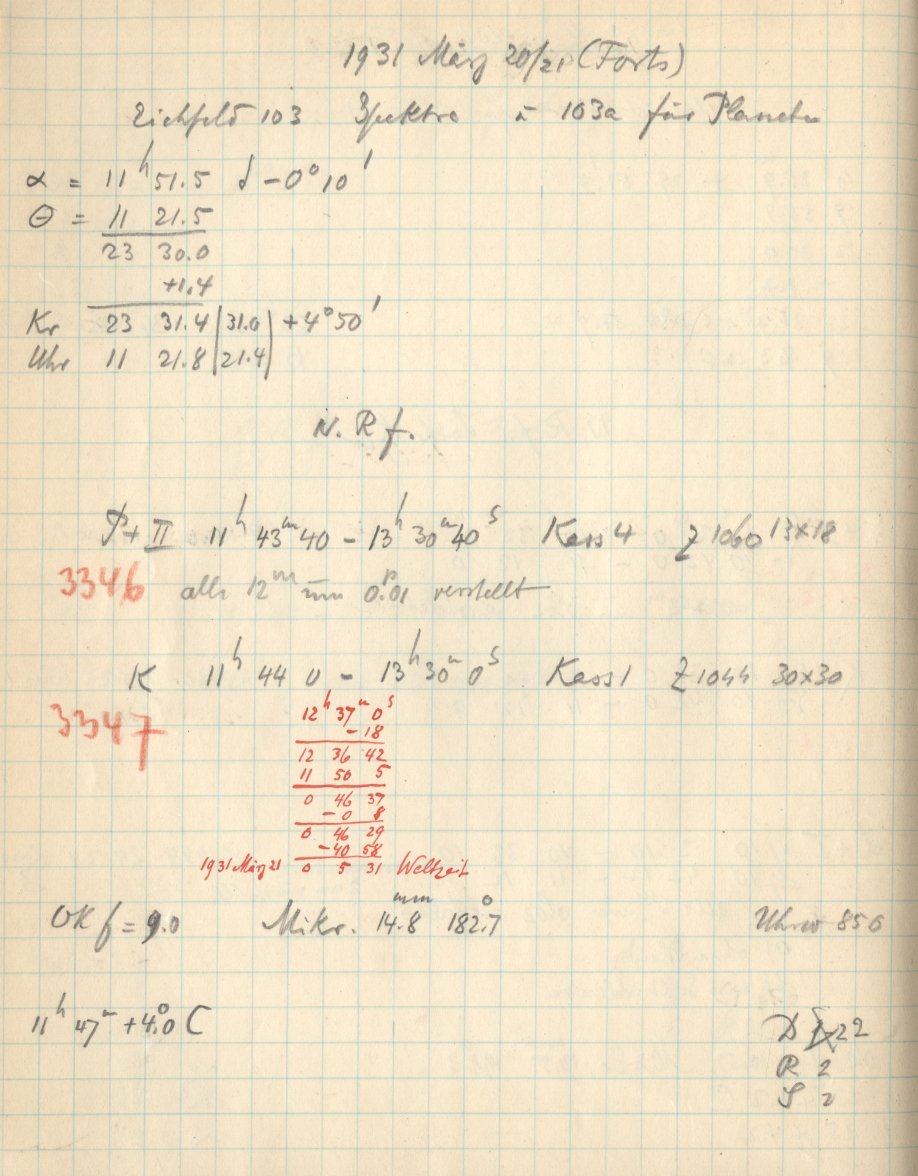 1931 März 20/21 (Forts)
Eichfeld 103 Spektro u 103a für Planeten
α = 11ʰ 51.5 δ −0° 10'
Θ = 11 21.5
23 30.0
+1.4
Kr 23 31.4 | 31.0 | +4° 50'
Uhr 11 21.8 | 21.4 |
N. R f.
P+II 11ʰ 43ᵐ 40 − 13ʰ 30ᵐ 40ˢ Kass 4 Z 1060 13×18
3346 alle 12ᵐ um 0ᵖ.01 verstellt
K 11ʰ 44 0 − 13ʰ 30ᵐ 0ˢ Kass 1 Z 1044 30×30
3347
12ʰ 37ᵐ 0ˢ
−18
12 36 42
11 50 5
0 46 37
−0 8
0 46 29
−40 58
1931 März 21 0 5 31 Weltzeit
OK f = 9.0 Mikr. 14.8ᵐᵐ 182.7° Uhrw 856
11ʰ 47ᵐ +4.0° C
D 22
R 2
S 2